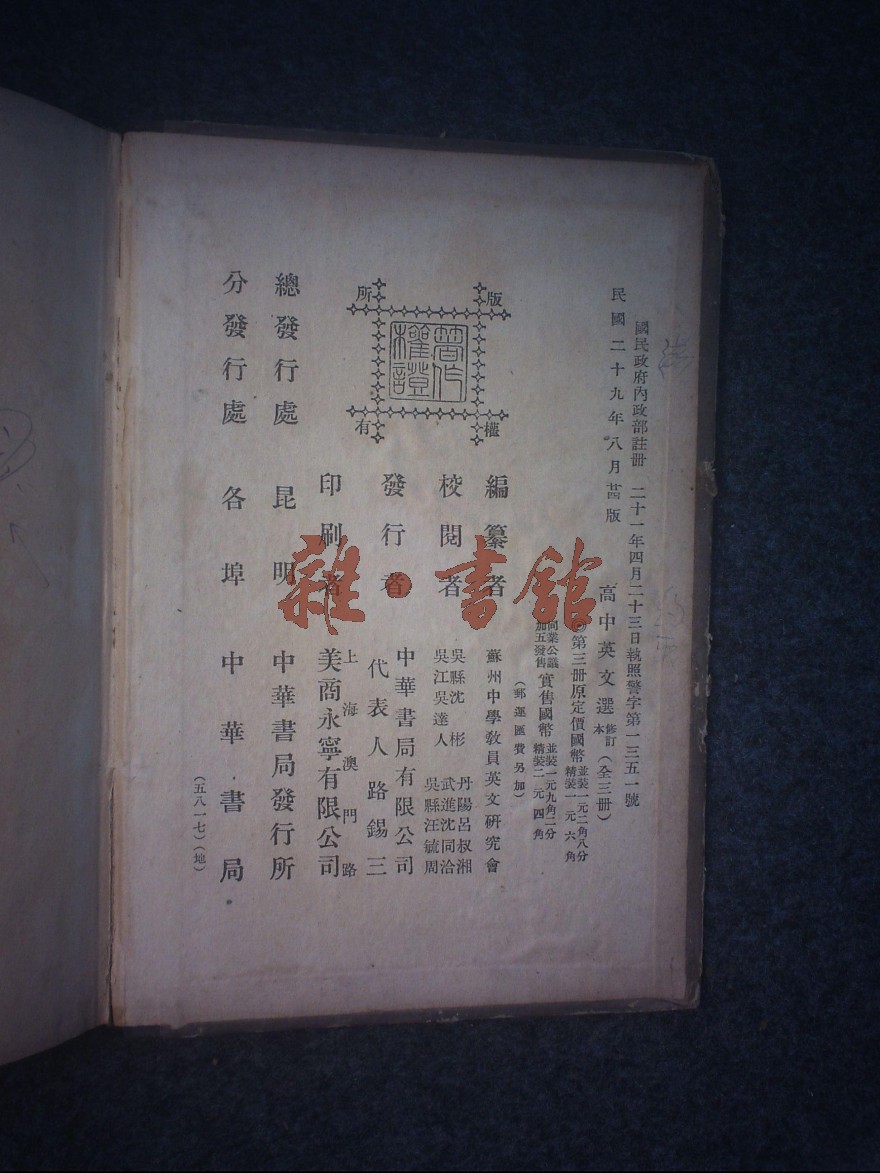 國民政府內政部註冊 二十一年四月二十三日執照警字第一三五一號
民國二十九年八月 版
高中英文選 修訂本 (全三冊)
第三冊原定價國幣 並裝一元二角八分 精裝一元六角
同業公議 加五發售 實售國幣 並裝一元九角二分 精裝二元四角
(郵運匯費另加)
版權所有
著作權證
編纂者 蘇州中學教員英文研究會
校閱者 吳縣沈彬 丹陽呂叔湘
吳江吳達人 武進沈同洽
吳縣汪毓周
發行者 中華書局有限公司
代表人路錫三
印刷者 上海澳門路
美商永寧有限公司
總發行處 昆明 中華書局發行所
分發行處 各埠 中華書局
(五八一七)(地)
雜·書館